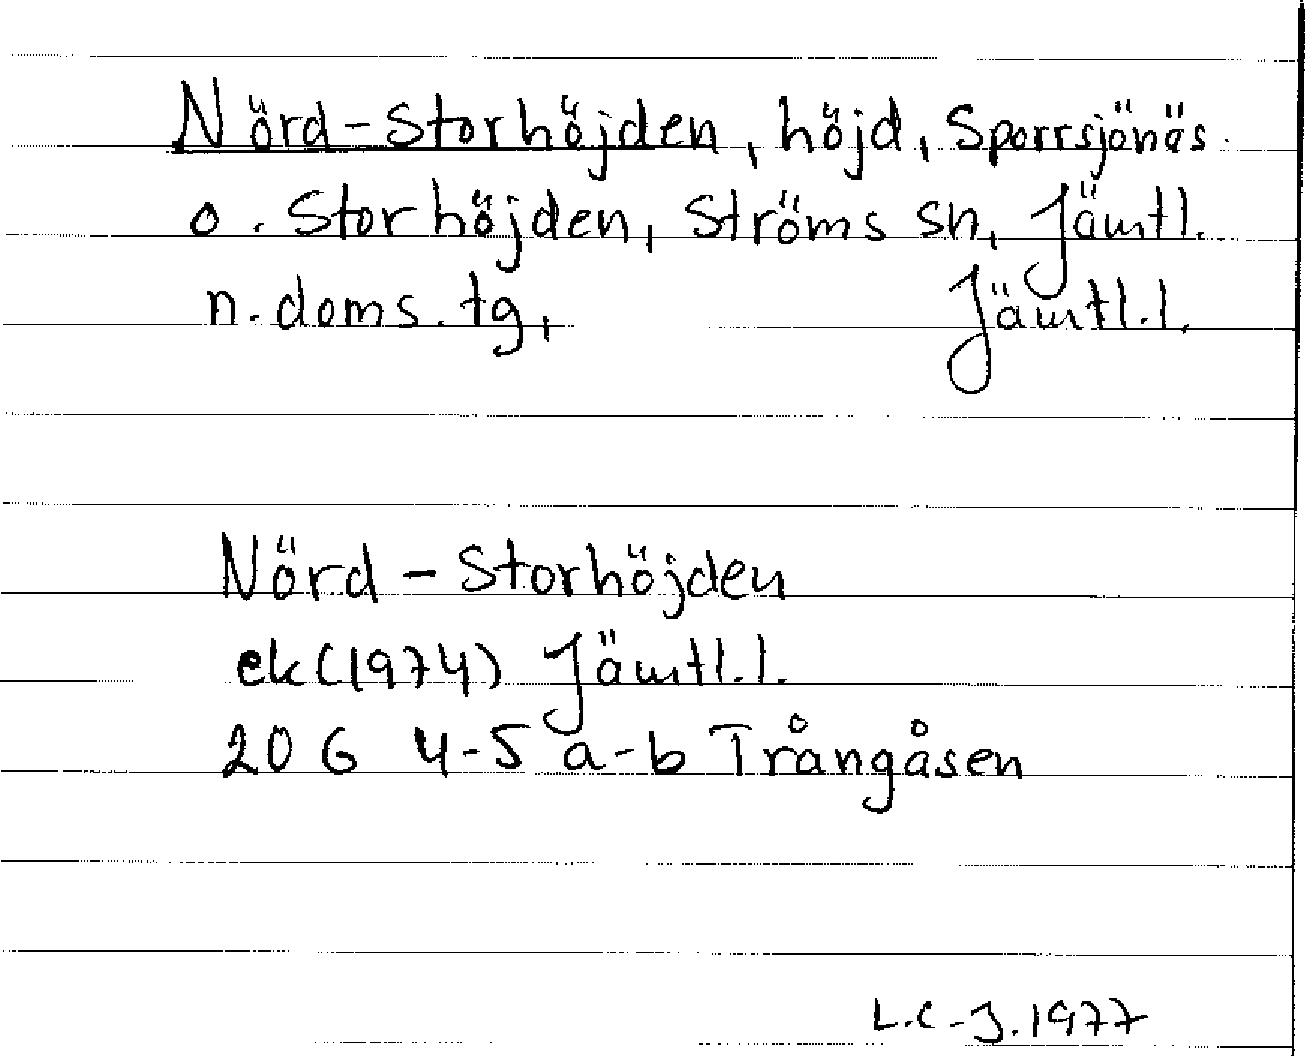 Nörd-Storhöjden, höjd, Sporrsjönäs
o. Storhöjden, Ströms sn, Jämtl.
n. doms. tg, Jämtl. l.
Nörd-Storhöjden
ek (1974) Jämtl. l.
20 G 4-5 a-b Trångåsen
L.C-J. 1977